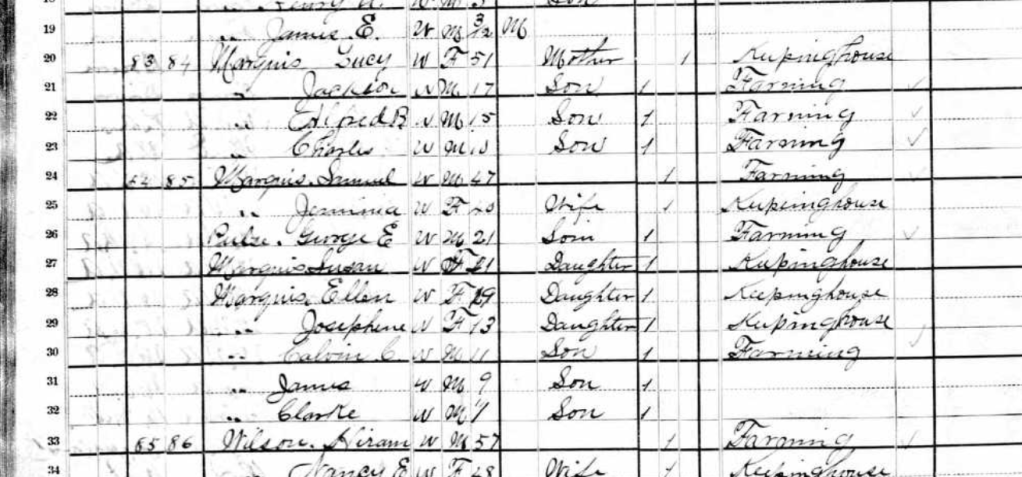 Henry W M 5 Son
19 " James E. W M 3/12 M
20 83 84 Marquis Lucy W F 51 Mother 1 Kupinghouse
21 " Jackson W M 17 Son 1 Farming
22 " Edlfred B W M 15 Son 1 Farming
23 " Charles W M Son 1 Farming
24 84 85 Marquis Samuel W M 47 1 Farming
25 " Jemimia W F 40 Wife 1 Kupeinghouse
26 George E W M 21 Son 1 Farming
27 Marquis Susan W F 21 Daughter 1 Kupinghouse
28 Marquis Ellen W F 19 Daughter 1 Keepinghouse
29 " Josephene W F 13 Daughter 1 Kupinghouse
30 " Calvin C W M 11 Son 1 Farming
31 " James W M 9 Son 1
32 " Clarke W M 7 Son 1
33 85 86 Wilson. Hiram W M 57 1 Farming
34 Nancy E W F 48 Wife 1 Keepinghouse